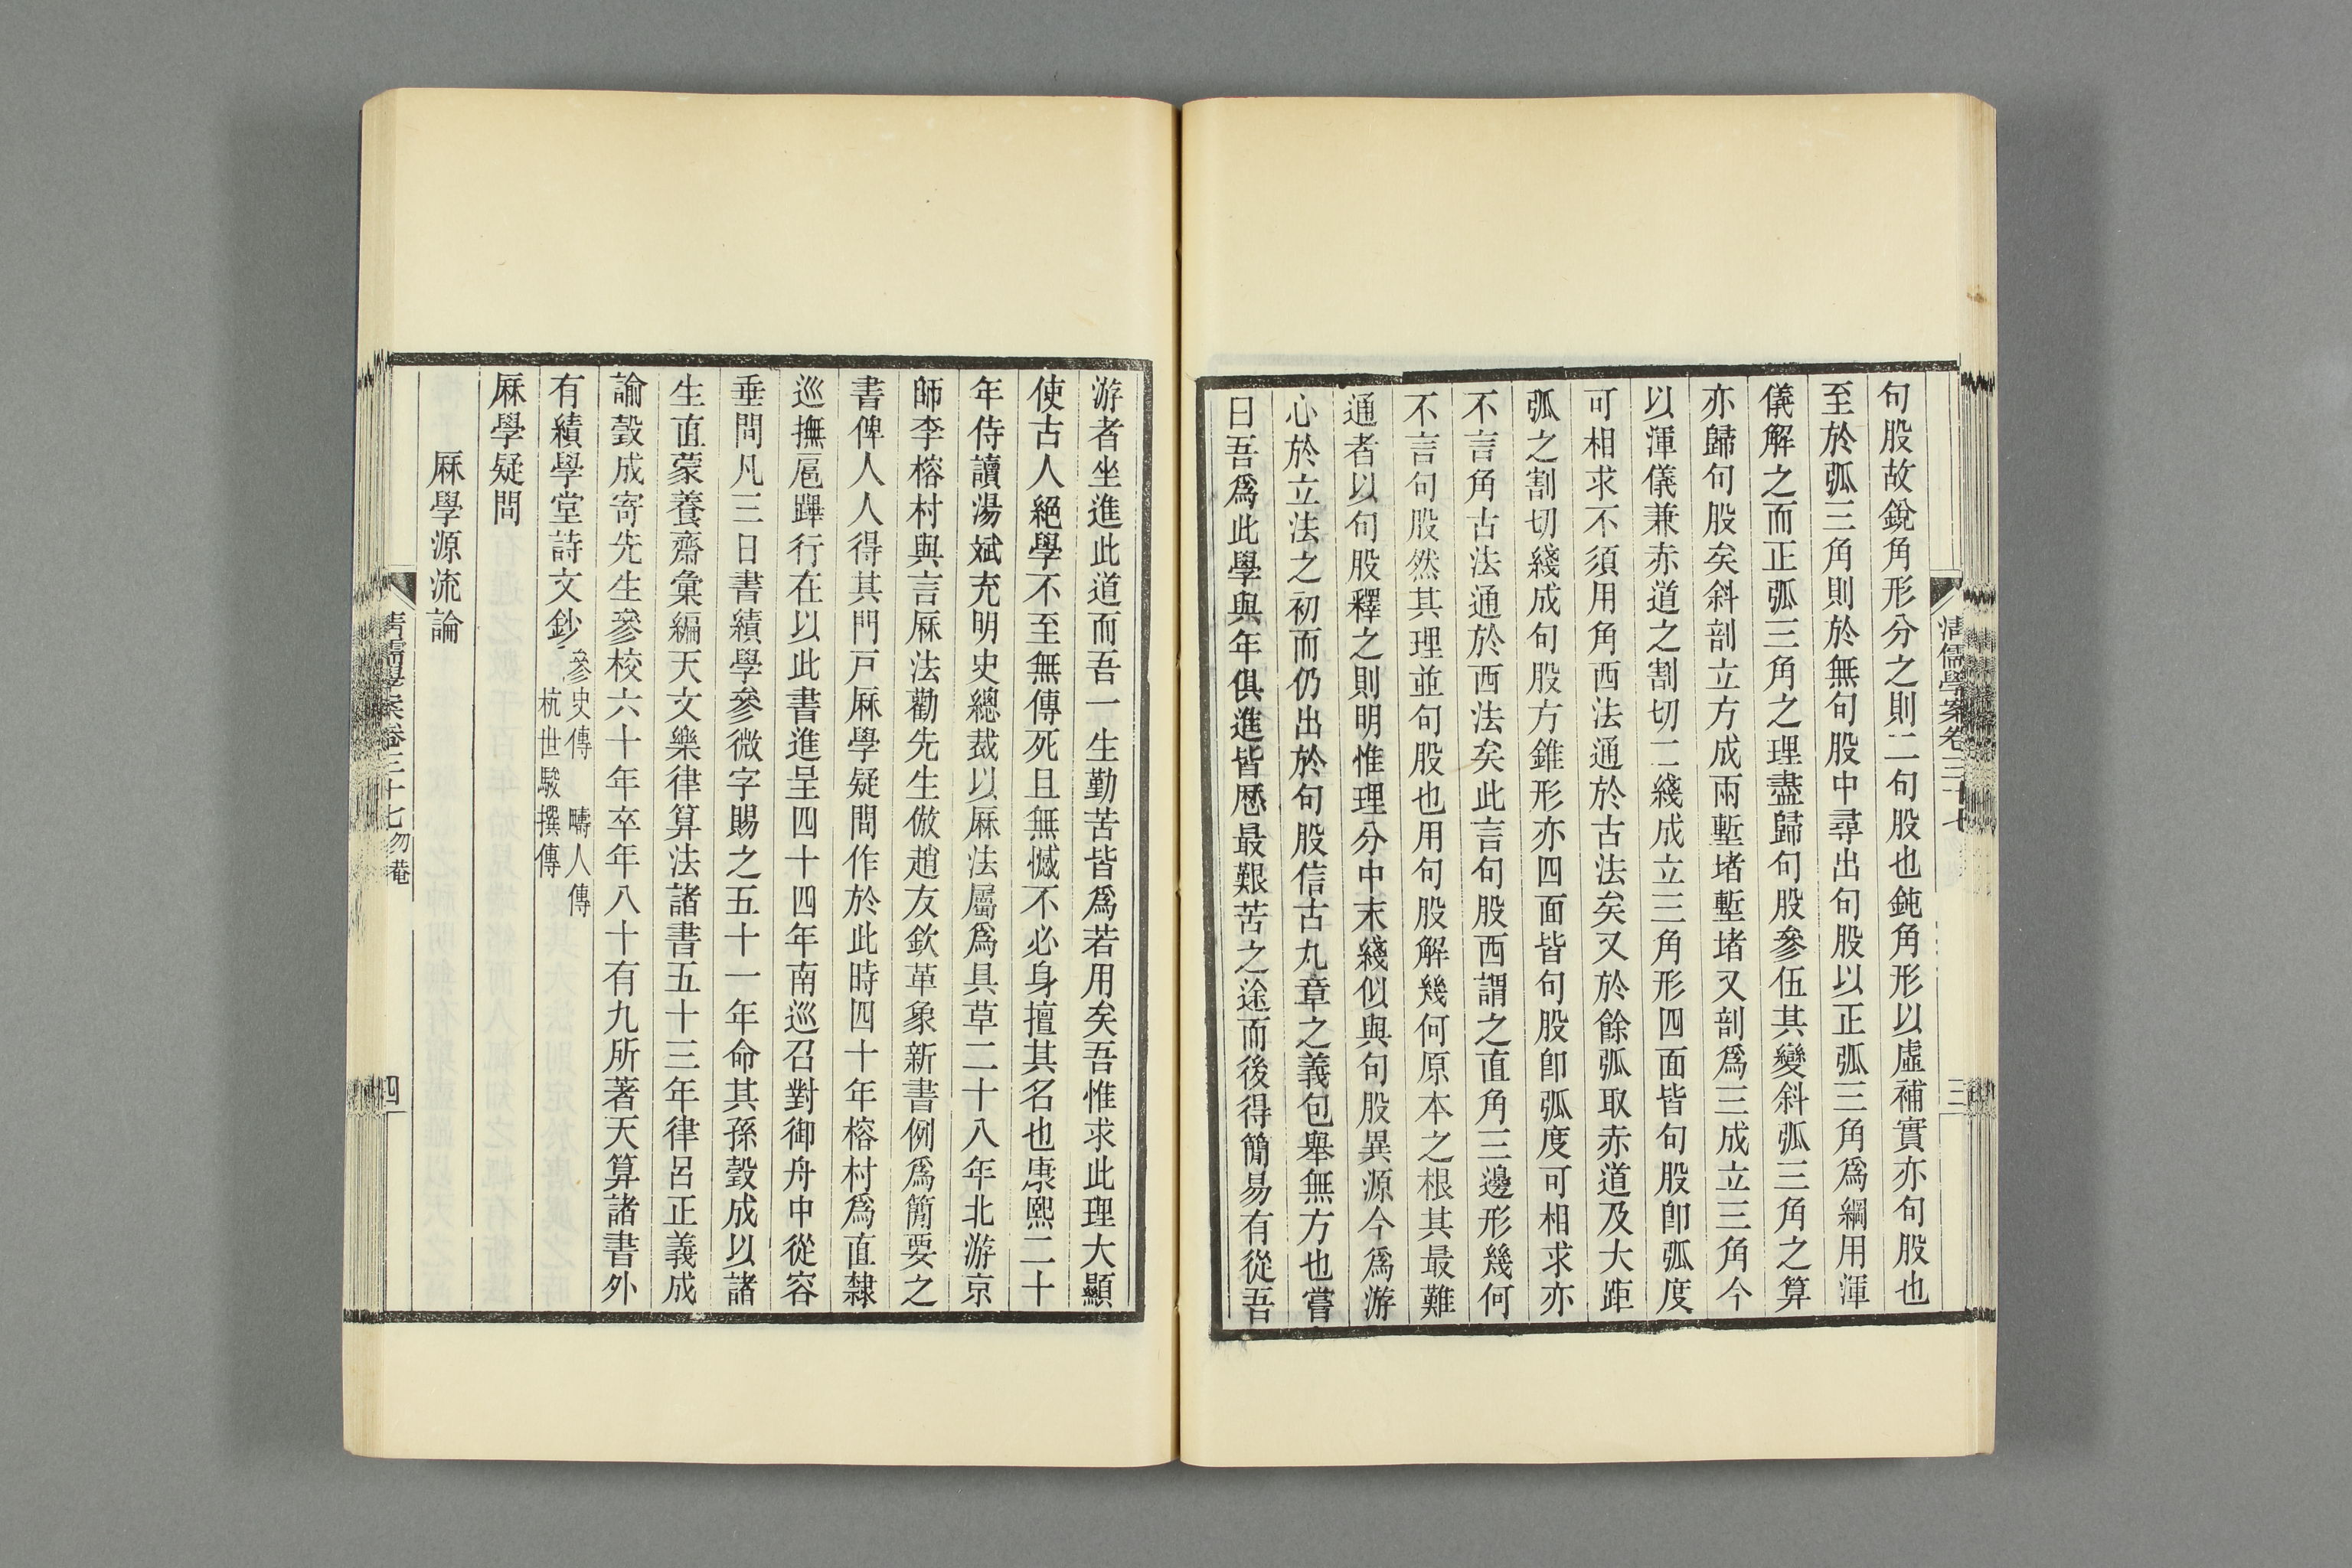 清儒學案卷三十七
三
句股故銳角形分之則二句股也鈍角形以虛補實亦句股也
至於弧三角則於無句股中尋出句股以正弧三角爲綱用渾
儀解之而正弧三角之理盡歸句股參伍其變斜弧三角之算
亦歸句股矣斜剖立方成兩塹堵塹堵又剖爲三成立三角今
以渾儀兼赤道之割切二綫成立三角形四面皆句股卽弧度
可相求不須用角西法通於古法矣又於餘弧取赤道及大距
弧之割切綫成句股方錐形亦四面皆句股卽弧度可相求亦
不言角古法通於西法矣此言句股西謂之直角三邊形幾何
不言句股然其理並句股也用句股解幾何原本之根其最難
通者以句股釋之則明惟理分中末綫似與句股異源今爲游
心於立法之初而仍出於句股信古九章之義包舉無方也嘗
曰吾爲此學與年俱進皆歷最艱苦之途而後得簡易有從吾
游者坐進此道而吾一生勤苦皆爲若用矣吾惟求此理大顯
使古人絕學不至無傳死且無憾不必身擅其名也康熙二十
年侍讀湯斌充明史總裁以厤法屬爲具草二十八年北游京
師李榕村與言厤法勸先生倣趙友欽革象新書例爲簡要之
書俾人人得其門戸厤學疑問作於此時四十年榕村爲直隸
巡撫扈蹕行在以此書進呈四十四年南巡召對御舟中從容
垂問凡三日書績學參微字賜之五十一年命其孫瑴成以諸
生直蒙養齋彙編天文樂律算法諸書五十三年律呂正義成
諭瑴成寄先生參校六十年卒年八十有九所著天算諸書外
有績學堂詩文鈔參史傳 疇人傳
杭世駿撰傳
厤學疑問
厤學源流論
清儒學案卷三十七勿菴
四